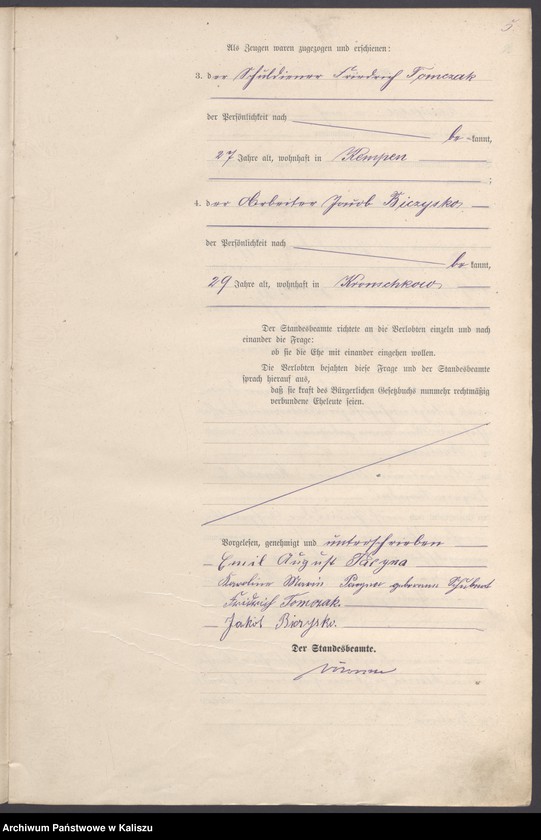 5
Als Zeugen waren zugezogen und erschienen:
3. der Schuldiener Friedrich Tomczak
der Persönlichkeit nach
be kannt,
27 Jahre alt, wohnhaft in Kempen
;
4. der Arbeiter Jacob Biczysko,
der Persönlichkeit nach
be kannt,
29 Jahre alt, wohnhaft in Kromschkow,
Der Standesbeamte richtete an die Verlobten einzeln und nach
einander die Frage:
ob sie die Ehe mit einander eingehen wollen.
Die Verlobten bejahten diese Frage und der Standesbeamte
sprach hierauf aus,
daß sie kraft des Bürgerlichen Gesetzbuchs nunmehr rechtmäßig
verbundene Eheleute seien.
Vorgelesen, genehmigt und unterschrieben
Emil August
Karoline Marie geborene
Fridrich Tomczak.
Jakob Biczysko.
Der Standesbeamte.
Archiwum Państwowe w Kaliszu